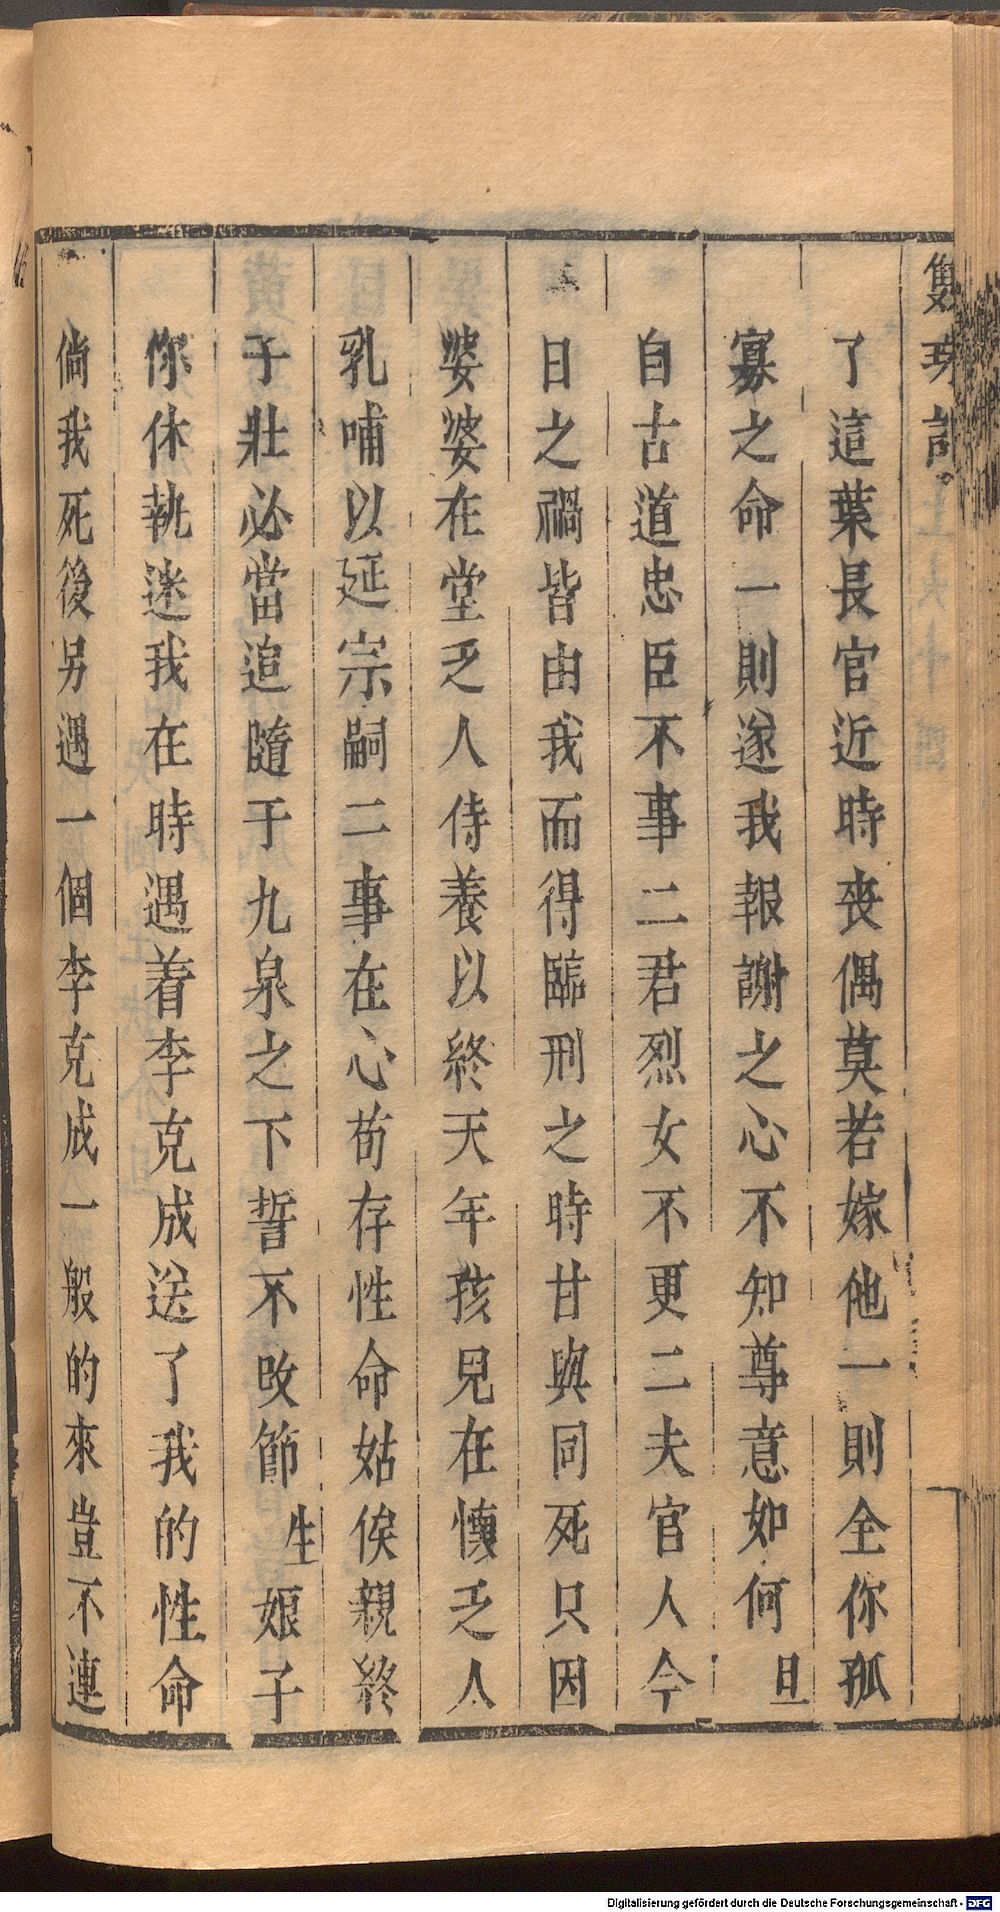 雙珠記
了這葉長官近時喪偶莫若嫁他一則全你孤
寡之命一則遂我報謝之心不知尊意如何旦
自古道忠臣不事二君烈女不更二夫官人今
日之禍皆由我而得臨刑之時甘與同死只因
婆婆在堂乏人侍養以終天年孩兒在懷乏人
乳哺以延宗嗣二事在心苟存性命姑俟親終
子壯必當追隨于九泉之下誓不改節生娘子
你休執迷我在時遇着李克成送了我的性命
倘我死後另遇一個李克成一般的來豈不連
Digitalisierung gefördert durch die Deutsche Forschungsgemeinschaft - DFG